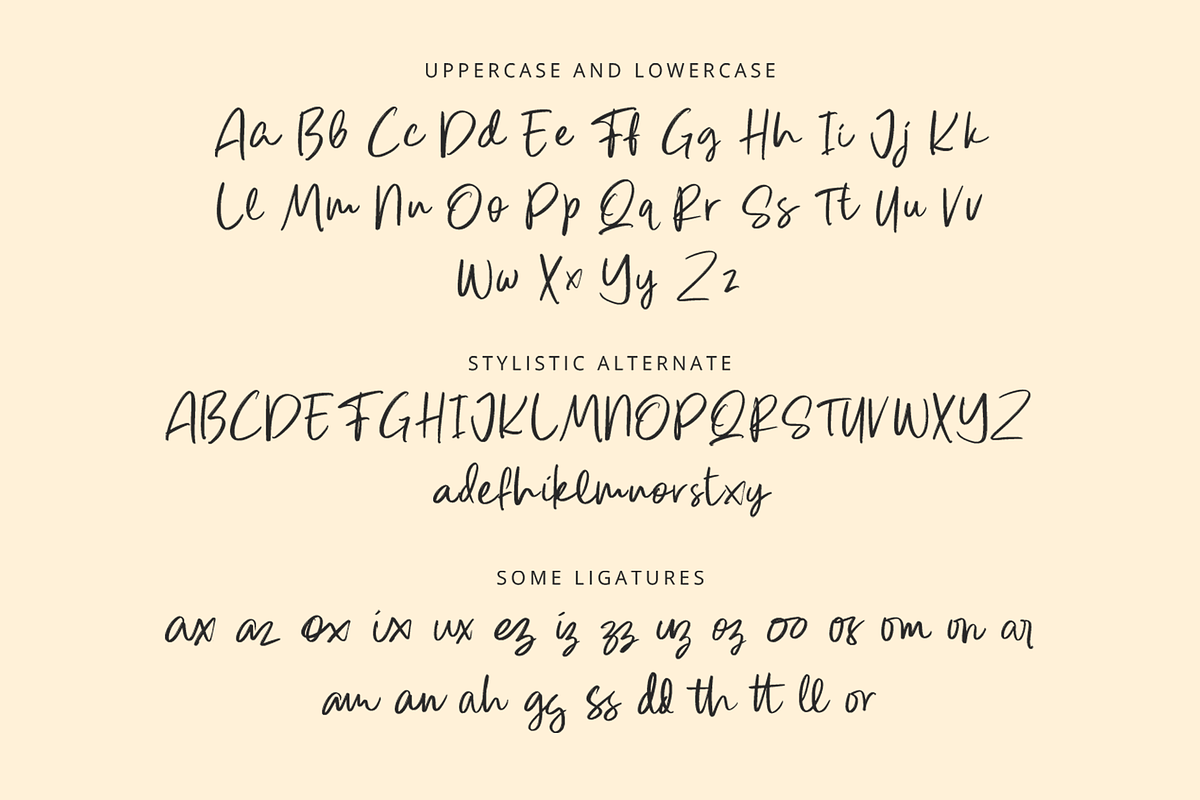 UPPERCASE AND LOWERCASE
Aa Bb Cc Dd Ee Ff Gg Hh Ii Jj Kk
Ll Mm Nn Oo Pp Qq Rr Ss Tt Uu Vv
Ww Xx Yy Zz
STYLISTIC ALTERNATE
ABCDEFGHIJKLMNOPQRSTUVWXYZ
adefhiklmnorstxy
SOME LIGATURES
ax az ox ix ux ez iz zz uz oz oo os om on ar
am an ah gg ss dd th tt ll or